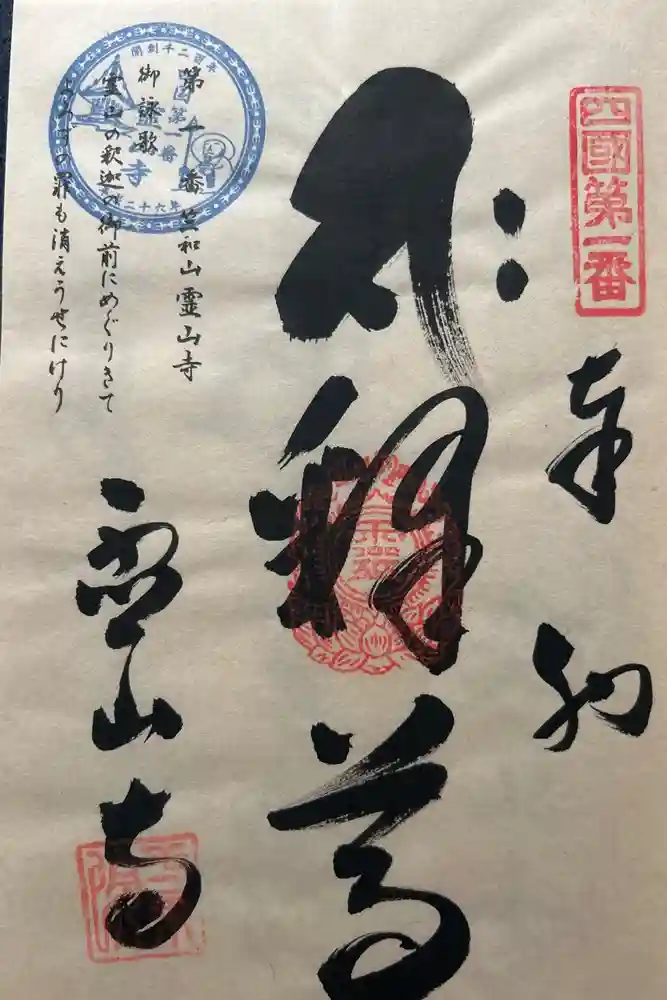 四國第一番
奉納
釈尊
第一番 竺和山 霊山寺
御詠歌
霊山の釈迦の御前にめぐりきて
よろづの罪も消えうせにけり
霊山寺
開創千二百年
第一番
寺
二十六年